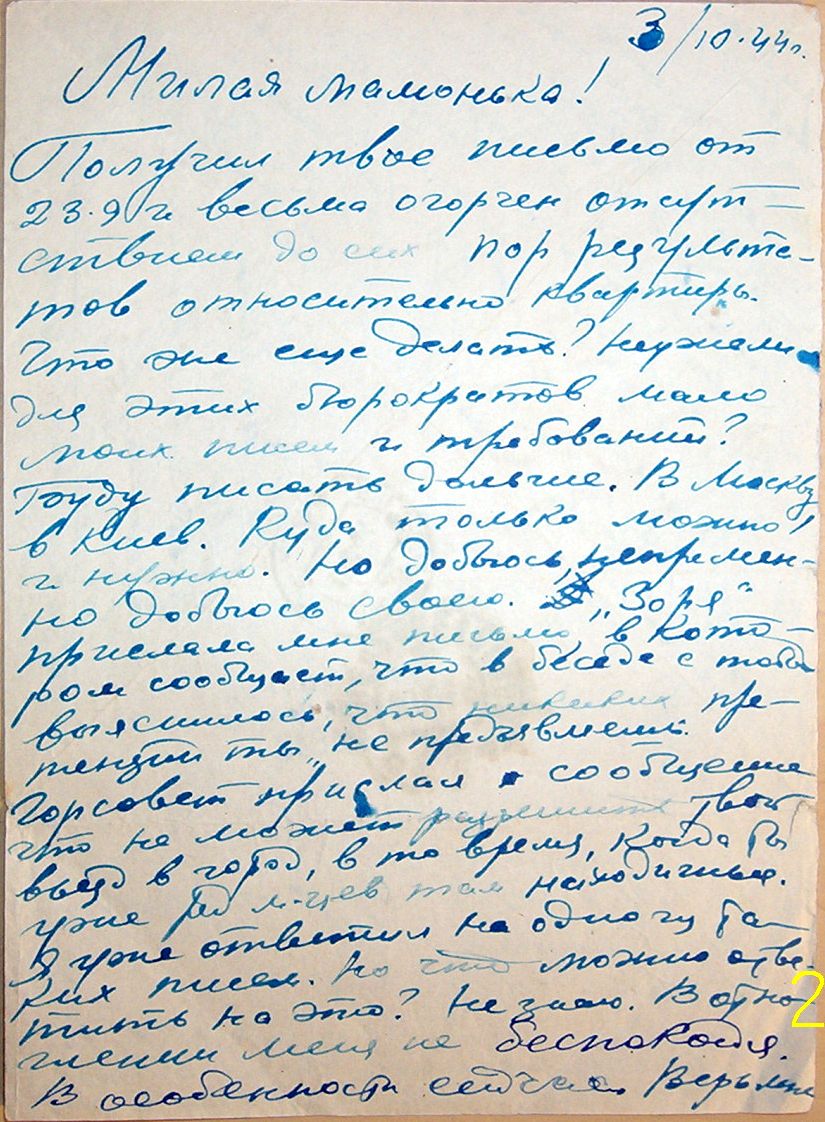 3/10.44г.
Милая мамонька!
Получил твое письмо от
23.9 и весьма огорчен отсут=
ствием до сих пор результа-
тов относительно квартиры.
Что же еще делать? Неужели
для этих бюрократов мало
моих писем и требований?
Буду писать дальше. В Москву
в Киев. Куда только можно
и нужно. Но добьюсь, непремен-
но добьюсь своего. „Заря“
прислала мне письмо, в кото-
ром сообщает, что в беседе с тобой
выяснилось, что никаких пре-
тензий ты не предъявляешь.
Горсовет прислал сообщение
что не может разрешить твой
въезд в город, в то время, когда ты
уже м-цев там находишься.
Я уже ответил на одно из та-
ких писем. Но что можно отве-
тить на это? Не знаю. В отно
шении меня не беспокойся.
В особенности сейчас. Верь мне
2